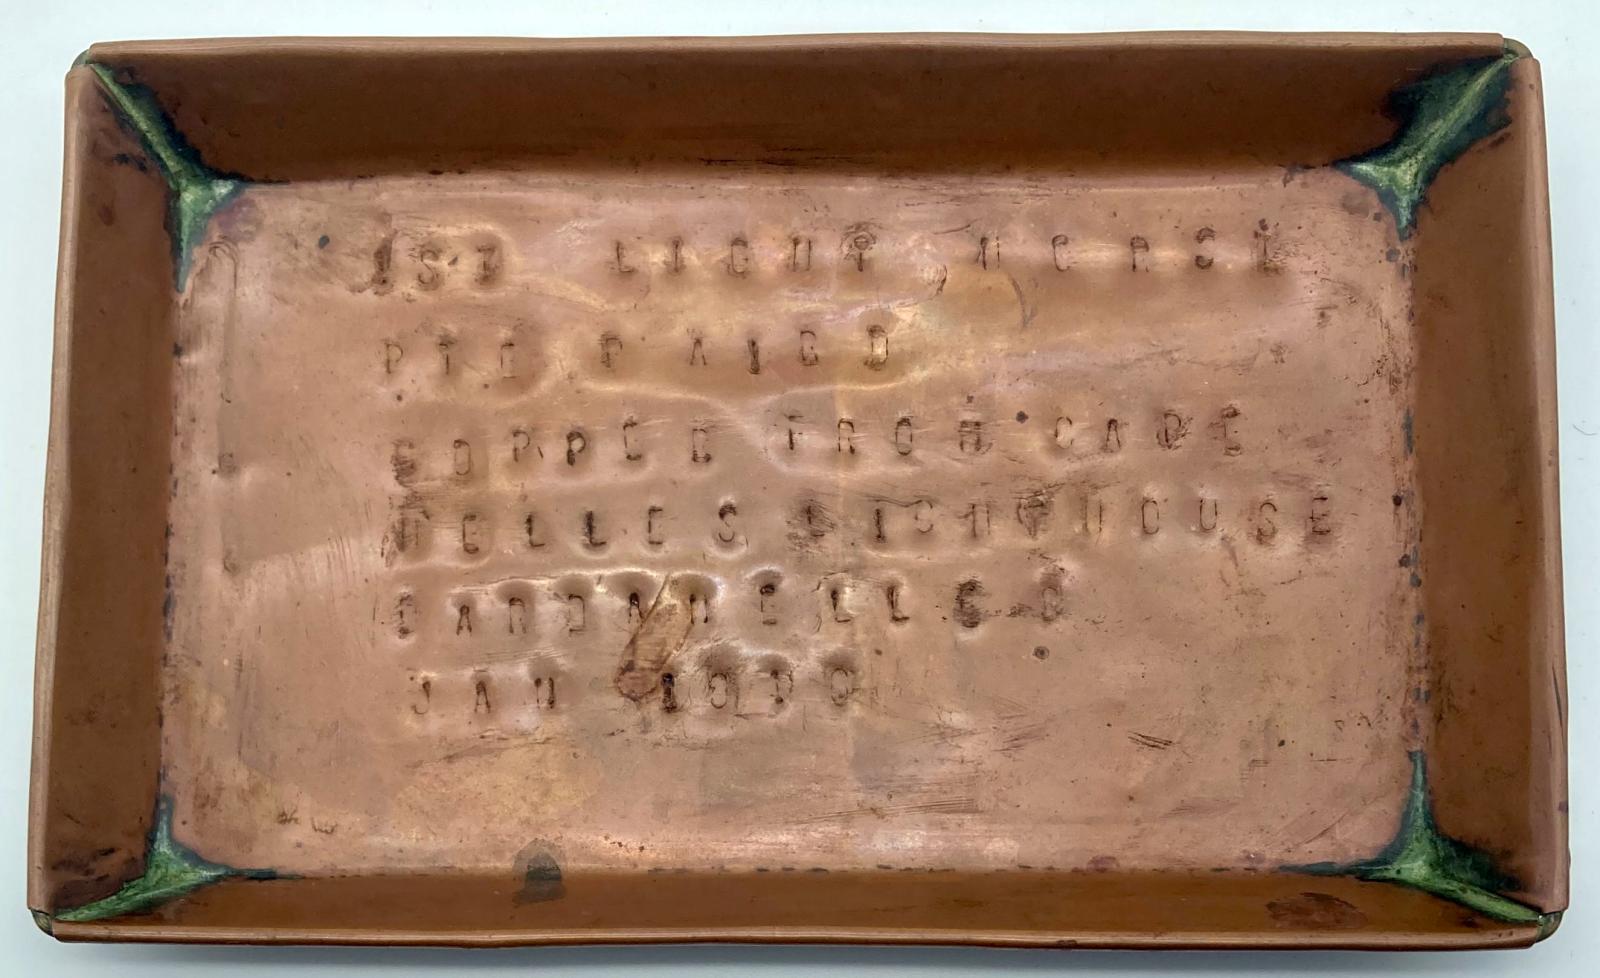 1ST LIGHT HORSE
PTE P AIRD
COPPER FROM CAPE
HELLES LIGHTHOUSE
DARDANELLES
JAN 1916